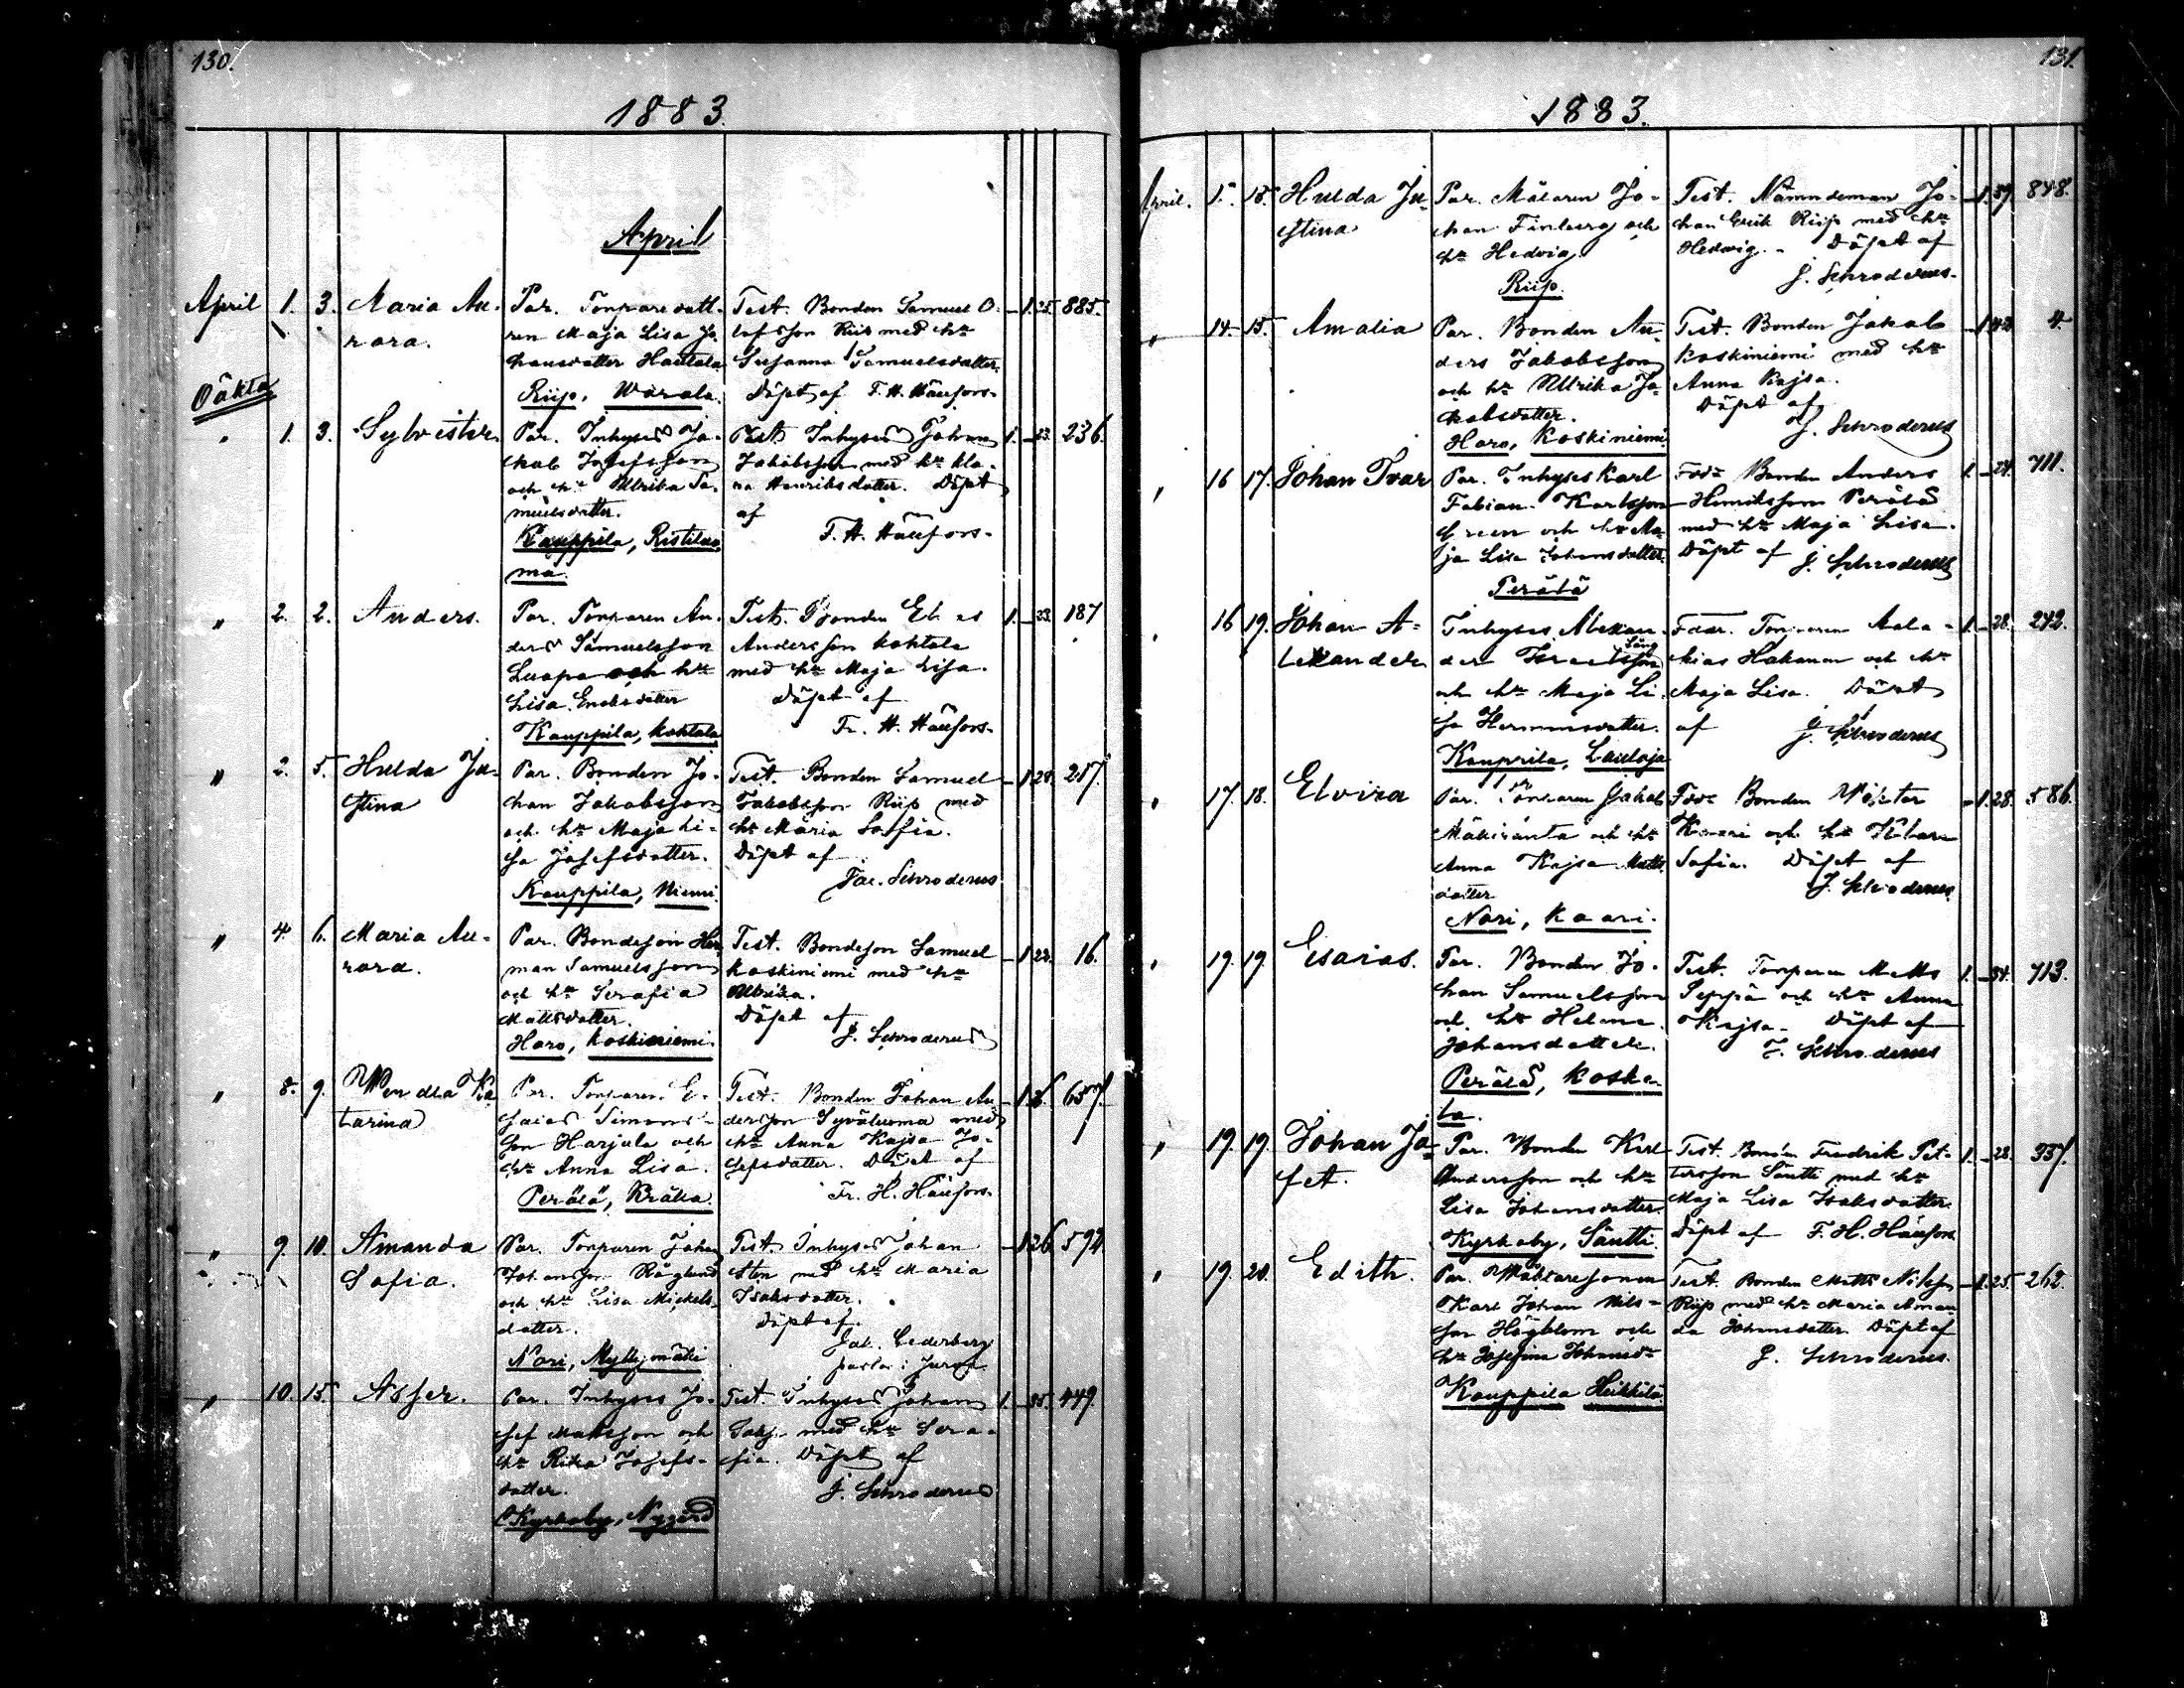 130.
1883.
April
April 1. 3. Maria Au-
rora.
Par. Torparedott-
ren Maja Lisa Jo-
hansdotter Hautala
Riip, Warala.
Test. Bonden Samuel O-
lofsson Riip med hu
Susanna Samuelsdotter.
Döpt af F. H. Häufors.
1. 25. 885.
Oäkta
" 1. 3. Sylvester.
Par. Inhyses Ja-
kob Josefsson
och hu Ulrika Sa-
muelsdotter.
Kauppila, Ristiluo-
ma.
Test. Inhyses Johan
Jakobsson med hu
Henriksdotter. Döpt
af
F. H. Häufors.
1. 33. 236.
" 2. 2. Anders.
Par. Torparen An-
ders Samuelsson
Luopa och hu
Lisa Eriksdotter
Kauppila, Kohtala
Test. Bonden
Andersson Kohtala
med hu Maja Lisa.
Döpt af
Fr. H. Häufors.
1. 33. 187
" 2. 5. Hulda Ju-
stina
Par. Bonden Jo-
han Jakobsson
och hu Maja Li-
sa Josefsdotter.
Kauppila, Niemi.
Test. Bonden Samuel
Jakobsson Riip med
hu Maria Sofia.
Döpt af
Jac. Schroderus
1. 28. 217.
" 4. 6. Maria Au-
rora.
Par. Bondeson Her-
man Samuelsson
och hu Serafia
Mattsdotter.
Haro, Koskiniemi.
Test. Bondeson Samuel
Koskiniemi med hu
Ulrika.
Döpt af
J. Schroderus
1. 22. 16.
" 8. 9. Wendla Ka-
tarina
Par. Torparen E-
saias Simons-
son Harjula och
hu Anna Lisa.
Perälä, Kräka
Test. Bonden Johan An-
dersson Syväluoma med
hu Anna Kajsa Jo-
sefsdotter. Döpt af
Fr. H. Häufors.
657.
" 9. 10. Amanda
Sofia.
Par. Torparen Johan
Johansson Råglund
och hu Lisa Mickels-
dotter.
Nori, Myllymäki
Test. Inhyses Johan
Sten med hu Maria
Isaksdotter.
Döpt af
Jak. Cederberg
pastor i Jurva.
1. 26. 592
" 10. 15. Asser.
Par. Inhyses Jo-
sef Mattsson och
hu Rika Josefs-
dotter.
Kyrkoby, Nygård
Test. Inhyses Johan
med hu Sera-
fia. Döpt af
J. Schroderus
1. 35. 449.
131.
1883.
April. 15. Hulda Ju-
stina
Par. Målaren Jo-
han Finberg och
hu Hedvig.
Riip.
Test. Nämndeman Jo-
han Erik Riip med hu
Hedwig. Döpt af
J. Schroderus.
1. 37. 848.
" 14. 15. Amalia
Par. Bonden An-
ders Jakobsson
och hu Ullrika Ja-
kobsdotter.
Haro, Koskiniemi
Test. Bonden Jakob
Koskiniemi med hu
Anna Kajsa.
Döpt af
J. Schroderus
1. 42. 4.
" 16 17. Johan Ivar
Par. Inhyses Karl
Fabian Karlsson
Green och hu Ma-
ja Lisa Johansdotter.
Perälä
Fadr. Bonden Anders
Henriksson Perälä
med hu Maja Lisa.
Döpt af J. Schroderus
1. 24. 711.
" 16 19. Johan A-
lexander
Inhyses Alexan-
der Israelsson
och hu Maja Li-
sa Hermansdotter.
Kauppila, Lauloja
Faddr. Torparen Mala-
kias Hakanen och hu
Maja Lisa. Döpt
af J. Schroderus
1. 28. 242.
" 17. 18. Elvira
Par. Torparen Jakob
Mäkiranta och hu
Anna Kajsa Matts-
dotter
Nori, Kaari.
Fadr. Bonden Wiktor
Kaari och hu
Sofia. Döpt af
J. Schroderus.
1. 28. 586.
" 19. 19. Esaias.
Par. Bonden Jo-
han Samuelsson
och hu Helena
Johansdotter.
Perälä, Koske-
la.
Test. Torparen Matts
Seppä och hu Anna
Kajsa. Döpt af
J. Schroderus
1. 34. 713.
" 19. 19. Johan Ja-
fet.
Par. Bonden Karl
Andersson och hu
Lisa Johansdotter.
Kyrkoby, Säntti.
Test. Bonden Fredrik Pet-
tersson Säntti med hu
Maja Lisa Isaksdotter.
Döpt af F. H. Häufors
1. 28. 337.
" 19. 20. Edith.
Par. Mäklaresonen
Karl Johan Nils-
son Högblom och
hu Josefina Johansdr
Kauppila Heikkilä.
Test. Bonden Matts Nilsson
Riip med hu Maria Aman-
da Johansdotter. Döpt af
J. Schroderus.
1. 25. 262.